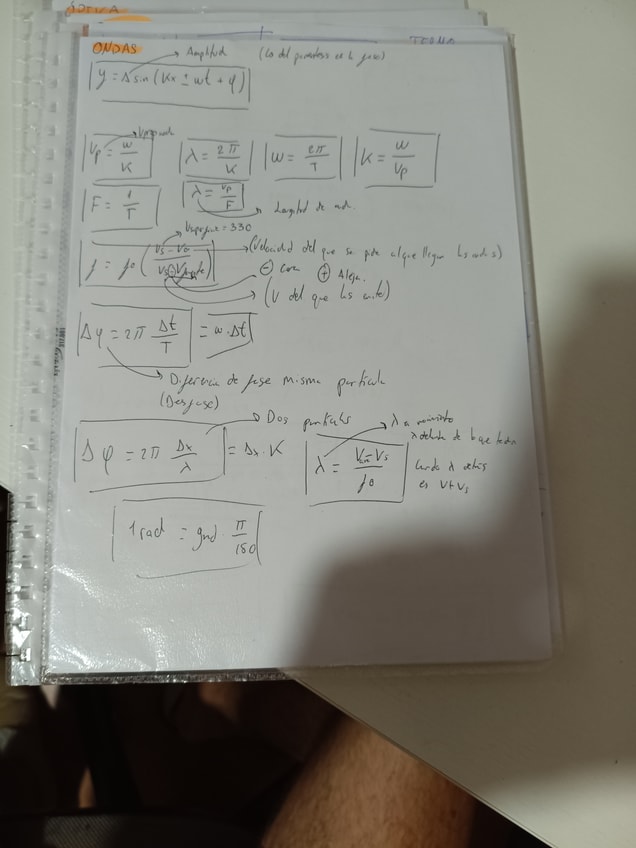 ÓPTICA
TERMO
ONDAS
Amplitud (Lo del parentesis es la fase)
y = A sin (Kx ± wt + φ)
Vp = w/K λ = 2π/K w = 2π/T K = w/Vp
F = 1/T λ = Vp/F Longitud de onda.
= 330
(Velocidad del que se pide al que llegan las ondas)
f = fo
⊖ cerca ⊕ Aleja.
(V del que las emite)
Δφ = 2π Δt/T = w·Δt
Diferencia de fase misma partícula
(Desfase)
Dos partículas
Δφ = 2π Δx/λ = Δx·K
λ en movimiento
λ delante de lo que
λ = - Vs/fo
cuando λ detrás
es V+Vs
1 rad = grad · π/180